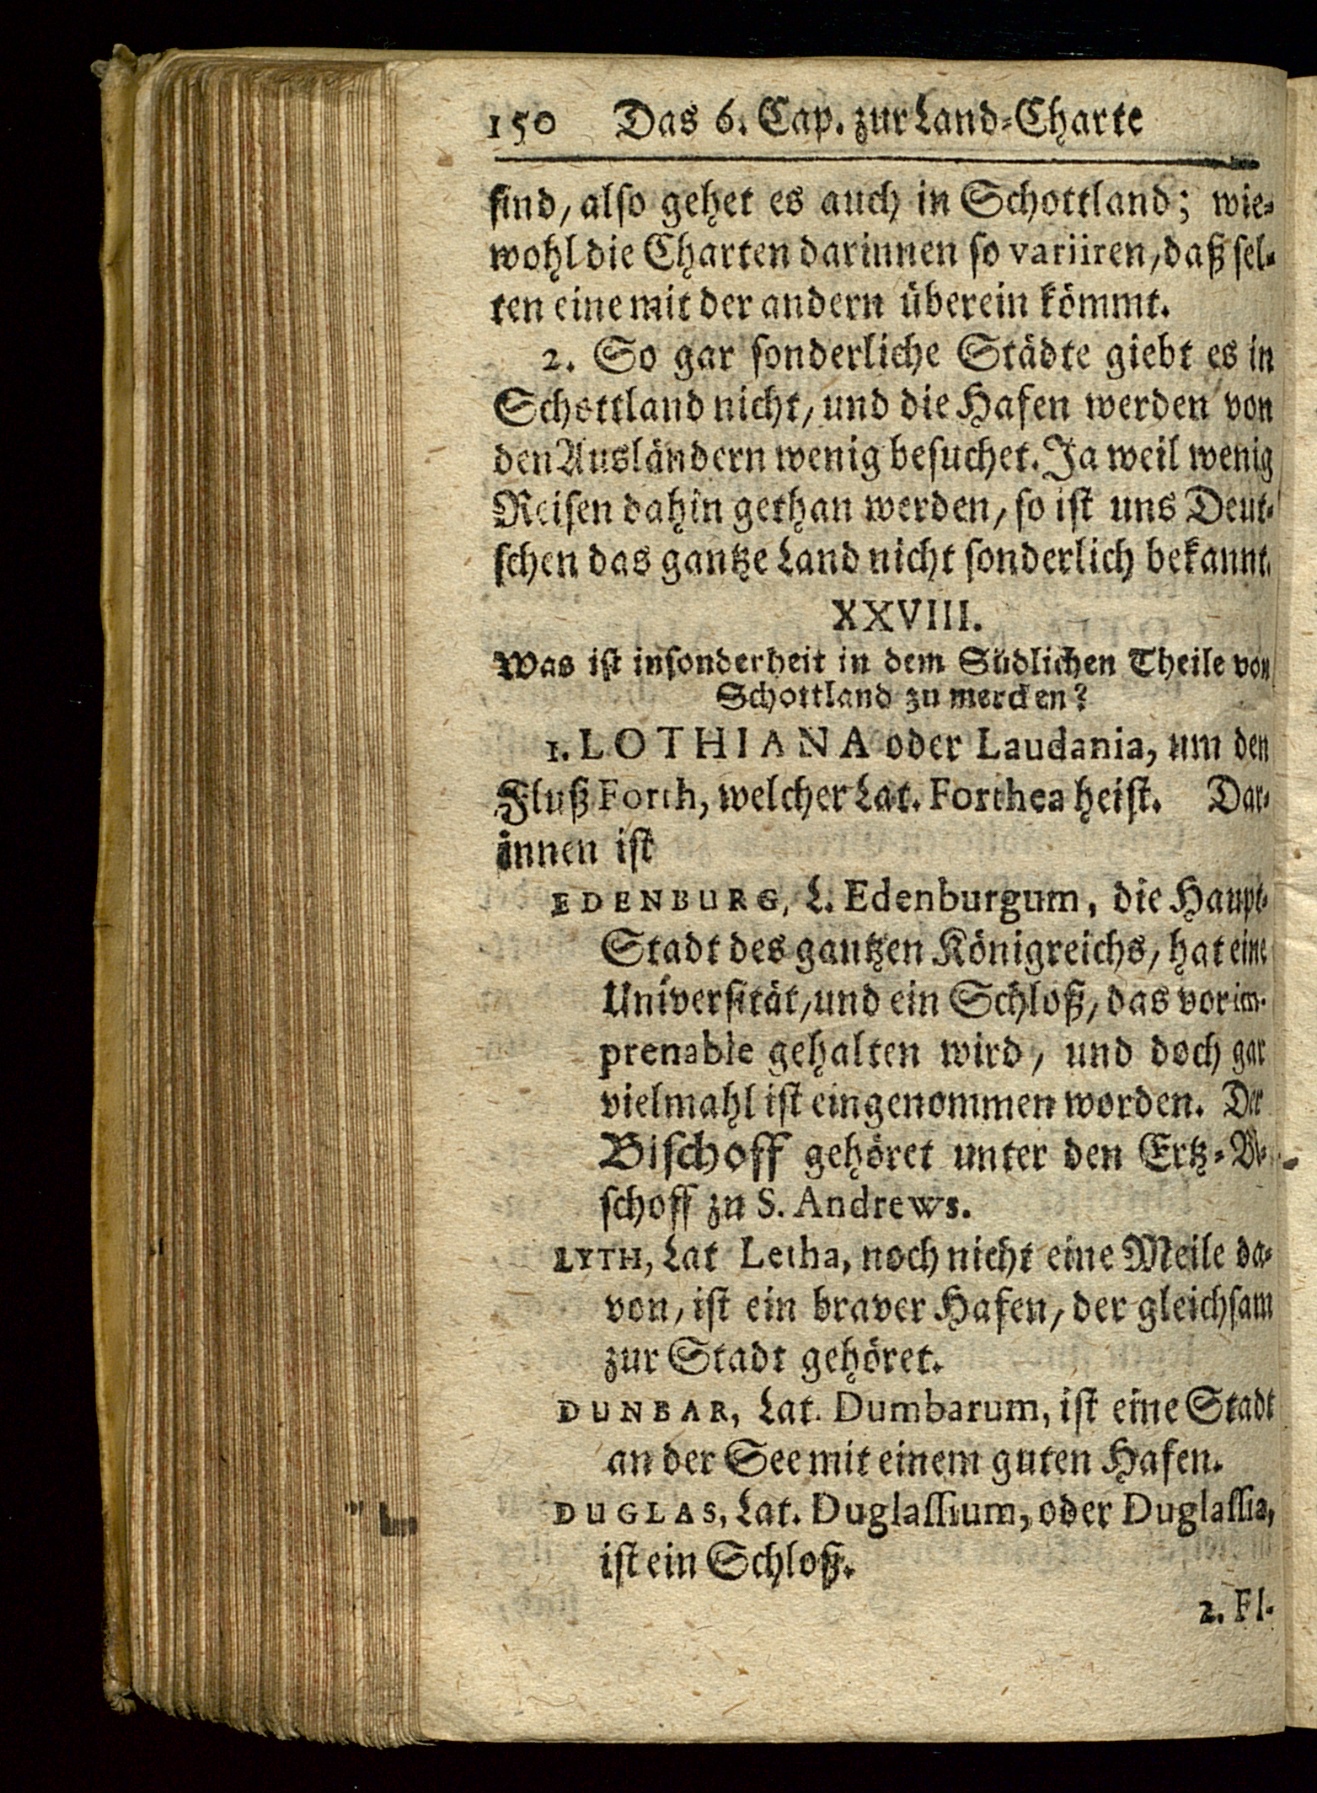 150 Das 6. Cap. zur Land-Charte
sind, also gehet es auch in Schottland; wie-
wohl die Charten darinnen so variiren, daß sel-
ten eine mit der andern überein kömmt.
2. So gar sonderliche Städte giebt es in
Schottland nicht, und die Hafen werden von
den Ausländern wenig besuchet. Ja weil wenig
Reisen dahin gethan werden, so ist uns Deut-
schen das gantze Land nicht sonderlich bekannt.
XXVIII.
Was ist insonderheit in dem Südlichen Theile von
Schottland zu mercken?
1. LOTHIANA oder Laudania, um den
Fluß Forth, welcher Lat. Forthea heist. Dar-
innen ist
EDENBURG, L. Edenburgum, die Haupt-
Stadt des gantzen Königreichs, hat eine
Universität, und ein Schloß, das vor im-
prenable gehalten wird, und doch gar
vielmahl ist eingenommen worden. Der
Bischoff gehöret unter den Ertz-Bi-
schoff zu S. Andrews.
LYTH, Lat Letha, noch nicht eine Meile da-
von, ist ein braver Hafen, der gleichsam
zur Stadt gehöret.
DUNBAR, Lat. Dumbarum, ist eine Stadt
an der See mit einem guten Hafen.
DUGLAS, Lat. Duglassium, oder Duglassia,
ist ein Schloß.
2. Fl-